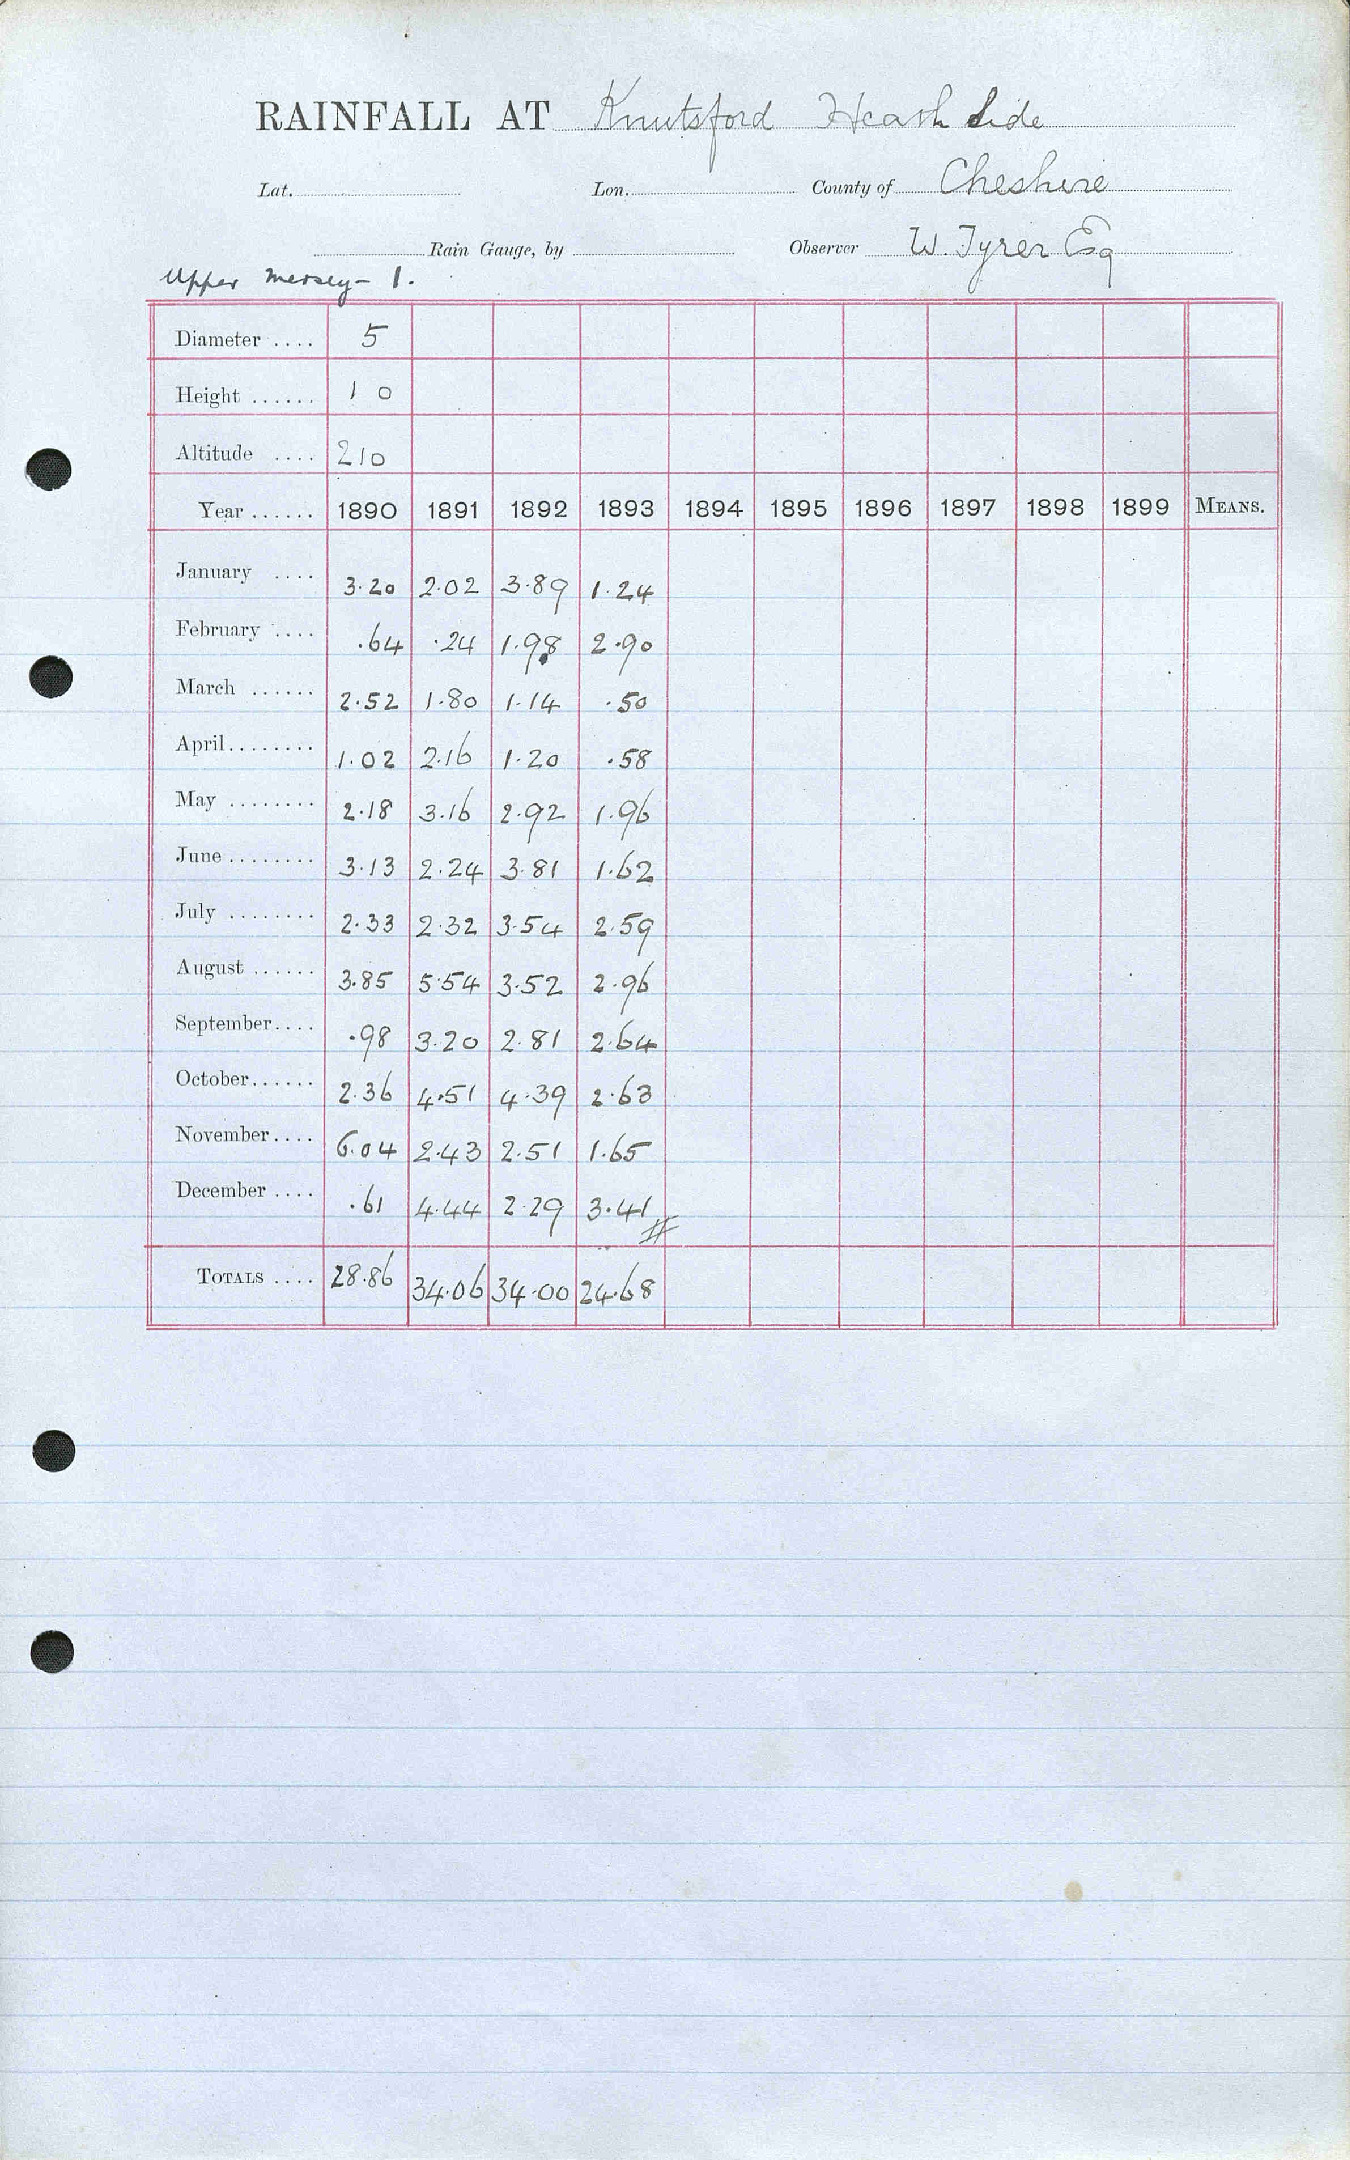 RAINFALL AT Knutsford Heath Side
Lat. Lon. County of Cheshire
Rain Gauge, by Observer W. Tyrer Esq
Upper Mersey - 1.
Diameter .... 5
Height ...... 1 0
Altitude .... 210
Year ...... 1890 1891 1892 1893 1894 1895 1896 1897 1898 1899 MEANS.
January .... 3.20 2.02 3.89 1.24
February .... .64 .24 1.98 2.90
March ...... 2.52 1.80 1.14 .50
April........ 1.02 2.16 1.20 .58
May ........ 2.18 3.16 2.92 1.96
June ........ 3.13 2.24 3.81 1.62
July ........ 2.33 2.32 3.54 2.59
August ...... 3.85 5.54 3.52 2.96
September.... .98 3.20 2.81 2.64
October...... 2.36 4.51 4.39 2.63
November.... 6.04 2.43 2.51 1.65
December .... .61 4.44 2.29 3.41
TOTALS .... 28.86 34.06 34.00 24.68